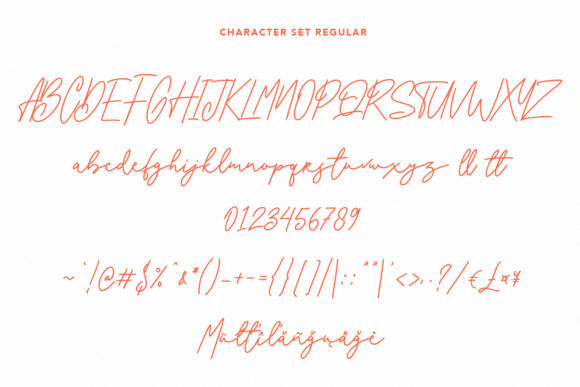 CHARACTER SET REGULAR
ABCDEFGHIJKLMNOPQRSTUVWXYZ
abcdefghijklmnopqrstuvwxyz ll tt
0123456789
~`!@#$%^&*()_+-={}[]/|:;""|'<>,.?/€£¤¥
Müłtîlăñğųåğė